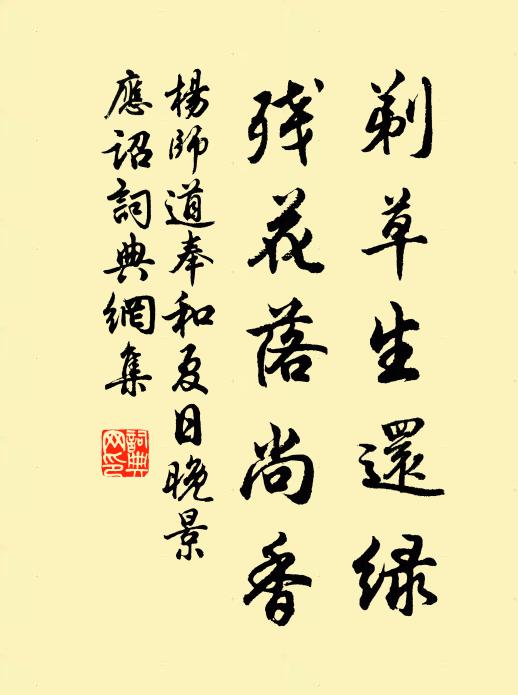 剃草生還緑
残花落尚香
楊師道奉和夏日晚景
應詔詞典網集
詞典
网印